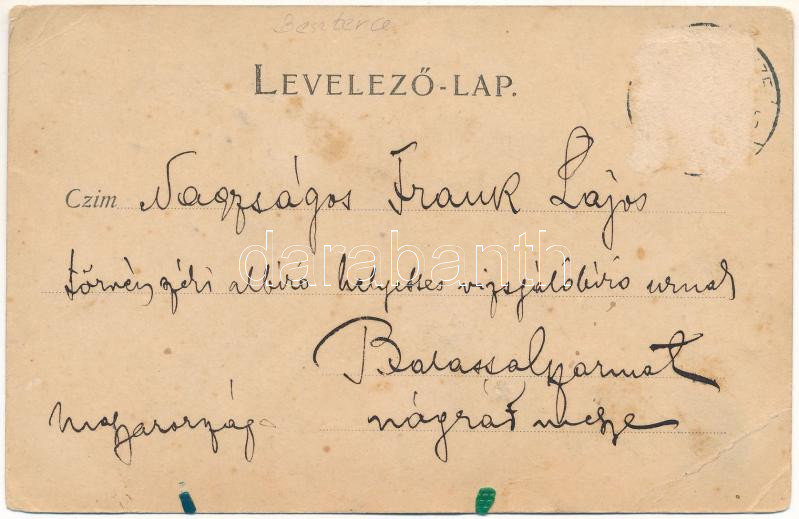 Beszterce
LEVELEZŐ-LAP.
Czim Nagyságos Frank Lajos
törvényszéki albíró helyettes vizsgálóbíró urnak
Balassagyarmat
magyarország nógrád megye
darabanth.com